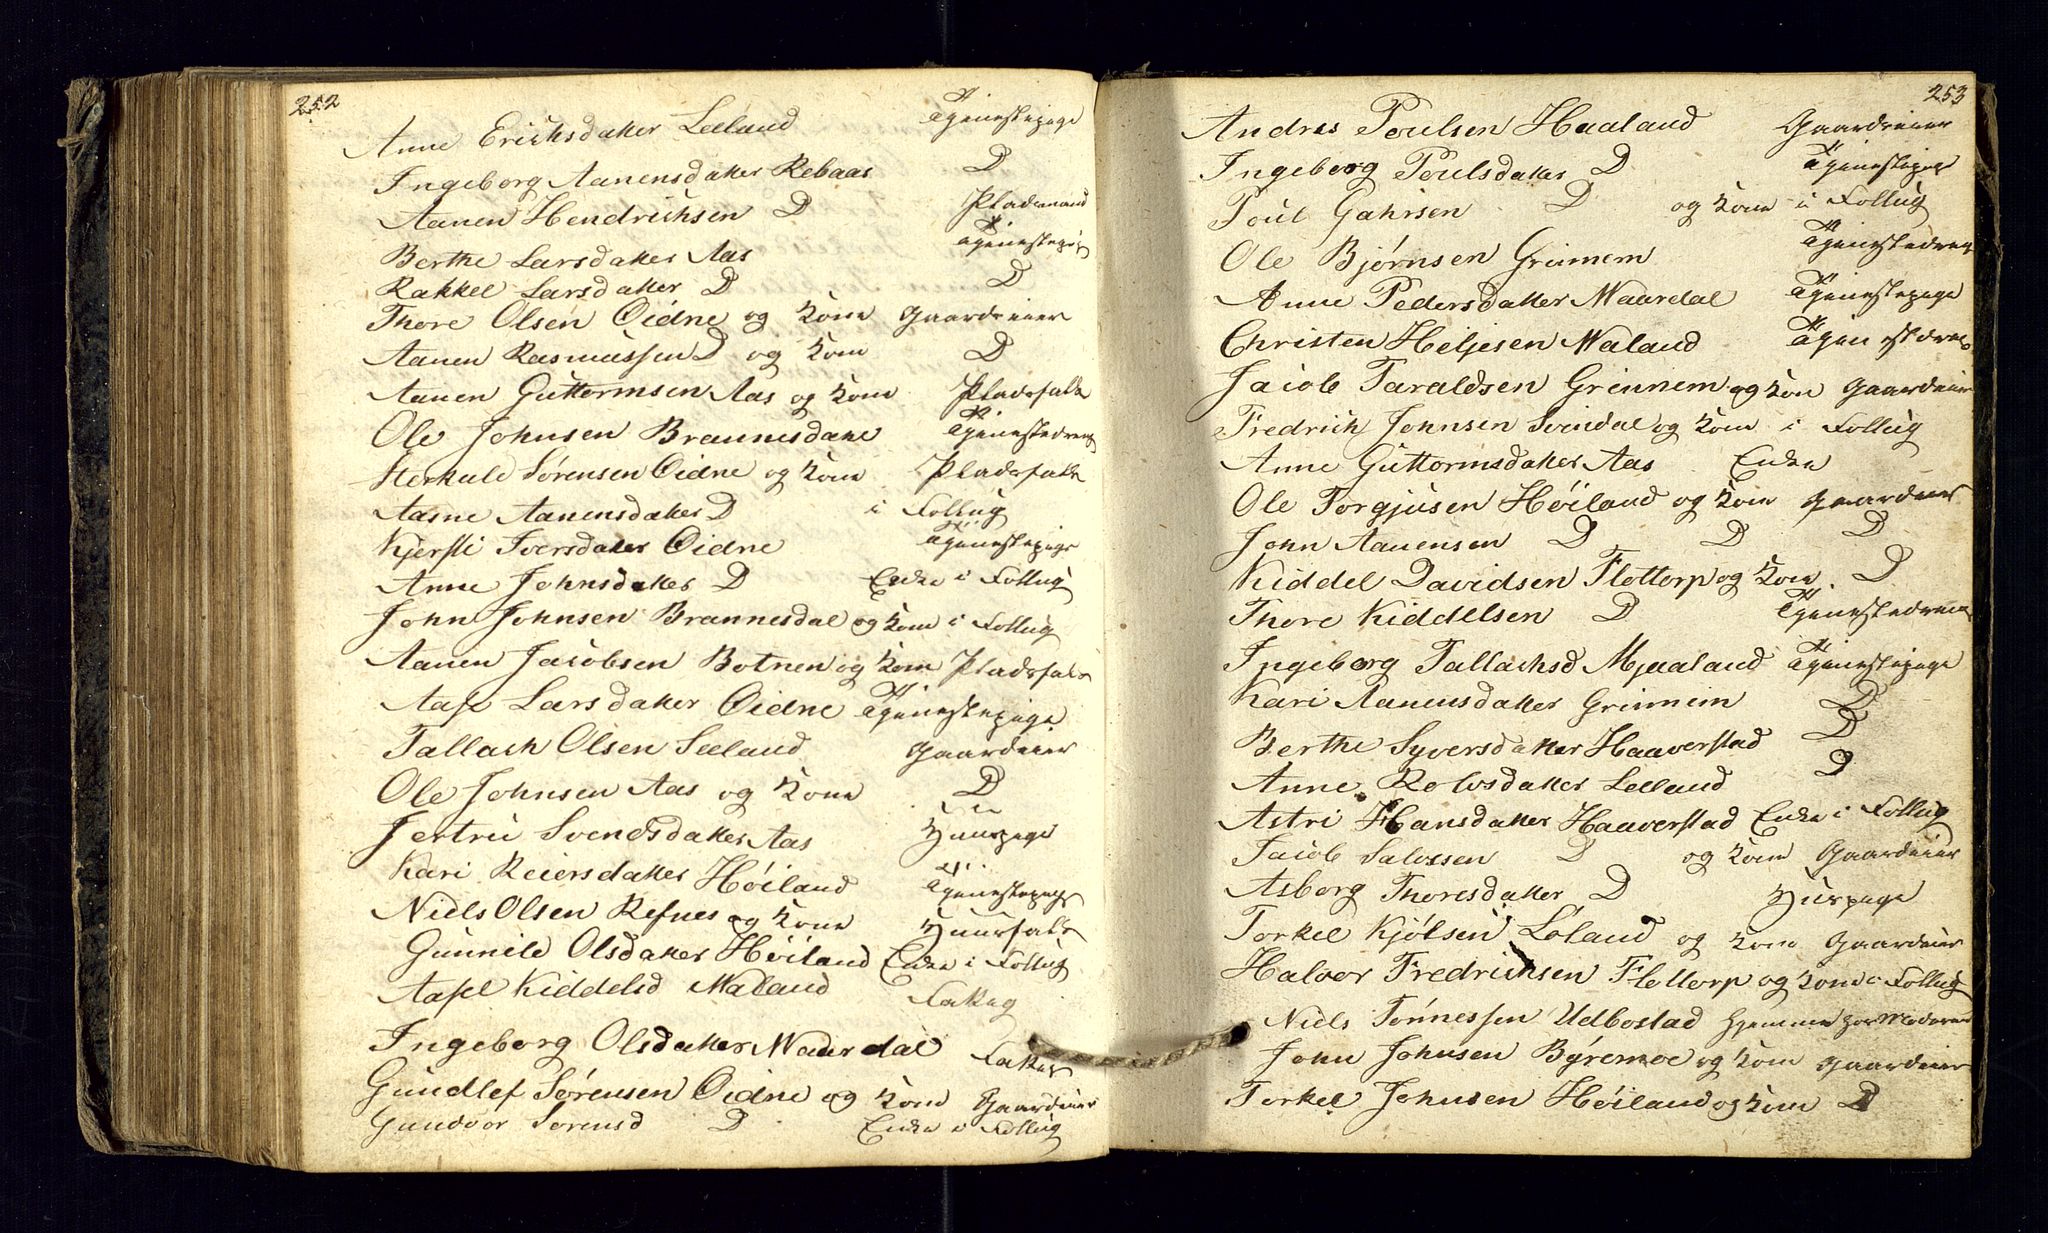 252
Anne Erichsdatter Leland Tjenestepige
Ingeborg Aanensdatter Rebaas D
Aanen Hendrichsen D Pladsmand
Berthe Larsdatter Aas Tjenestepige
Rakkel Larsdatter D D
Thore Olsen Øidne og Kone Gaardeier
Aanen Rasmussen D og Kone D
Aanen Guttormsen Aas og Kone Pladsfolk
Ole Johnsen Brannesdahl Tjenestedreng
Sterkule Sørensen Øidne og Kone Pladsfolk
Aasne Aanensdatter D i Follug
Kjersti Iversdatter Øidne Tjenestepige
Anne Johnsdatter D Enke i Follug
John Johnsen Brannesdal og Kone i Follug
Aanen Jacobsen Botnen og Kone Pladsfolk
Aase Larsdatter Øidne Tjenestepige
Tallach Olsen Seland Gaardeier
Ole Johnsen Aas og Kone D
Jertru Svendsdatter Aas Huuspige
Kari Reiersdatter Høiland Tjenestepige
Niels Olsen Refnes og Kone Huusfolk
Gunnild Olsdatter Høiland Enke i Follug
Aasel Kiddelsd Maland Fattig
Ingeborg Olsdatter Maurdal Fattig
Gundlef Sørensen Øidne og Kone Gaardeier
Gundvor Sørensd D Enke i Follug
253
Andres Poulsen Haaland Gaardeier
Ingeborg Poulsdatter D Tjenestepige
Poul Gahrsen D og Kone i Follug
Ole Bjørnsen Grinnem Tjenestedreng
Anne Pedersdatter Maurdal Tjenestepige
Christen Heljesen Maland Tjenestedreng
Jacob Taraldsen Grinnem og Kone Gaardeier
Fredrich Johnsen Svindal og Kone i Follug
Anne Guttormsdatter Aas Enke
Ole Torgjusen Høiland og Kone Gaardeier
John Aanensen D D D
Kiddel Davidsen Flottorp og Kone D
Thore Kiddelsen D Tjenestedreng
Ingeborg Tallachsd Mjaaland Tjenestepige
Kari Aanensdatter Grinnem D
Berthe Syversdatter Haaverstad D
Anne Rolvsdatter Leland D
Astri Hansdatter Haaverstad Enke i Follug
Jacob Salvesen D og Kone Gaardeier
Asborg Thoresdatter D Huspige
Torkel Kjølsen Løland og Kone Gaardeier
Halvor Fredrichsen Flottorp og Kone i Follug
Niels Tønnessen Udbostad hjemme hos Moderen
John Johnsen Byremoe og Kone Gaardeier
Torkel Johnsen Høiland og Kone D